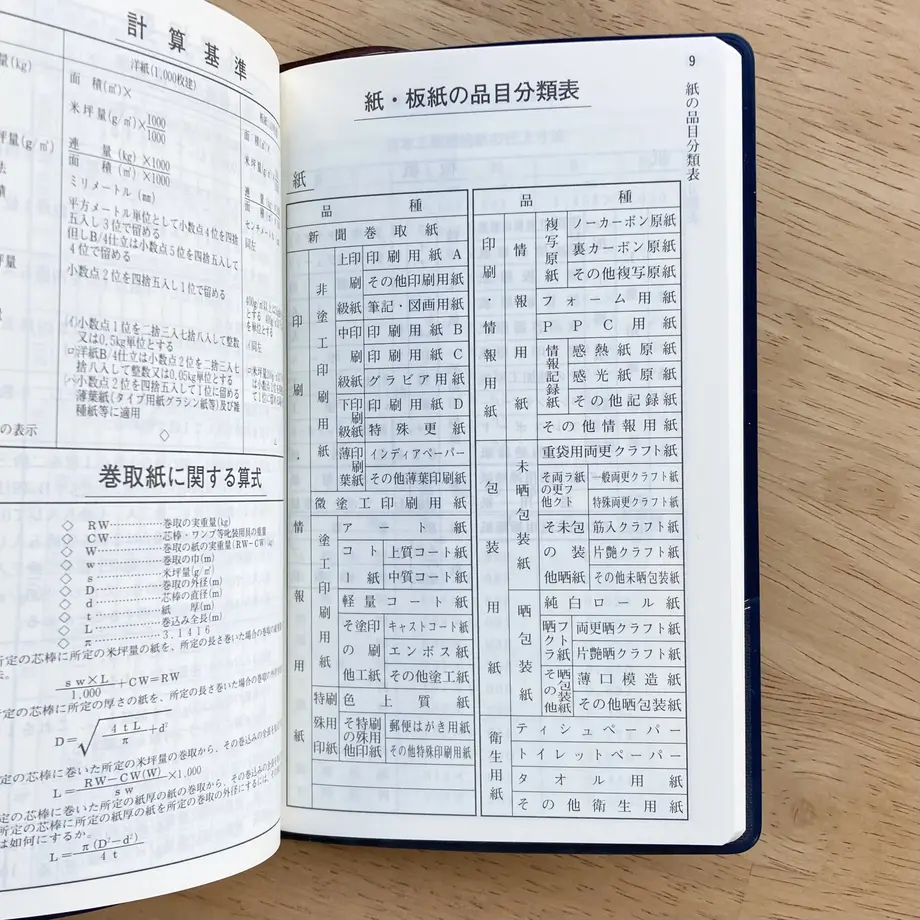 計算基準
量(kg)
洋紙(1,000枚建)
面 積(㎡)×
米坪量(g/㎡)×1000/1000
坪量(g/㎡)
連 量 (kg) ×1000
面 積 (㎡) ×1000
法
ミリメートル (㎜)
積
平方メートル単位として小数点4位を四捨
五入し3位で留める
但しB/4仕立は小数点5位を四捨五入して
4位で留める
量
小数点2位を四捨五入し1位で留める
(イ)小数点1位を二捨三入七捨八入して整数
又は0.5kg単位とする
(ロ)洋紙B/4仕立は小数点2位を二捨三入七
捨八入して整数又は0.05kg単位とする
(ハ)小数点2位を四捨五入して1位に留める
薄葉紙(タイプ用紙グラシン紙等)及び雑
種紙等に適用
の表示
◇
面 積(㎡)
センチメートル(㎝)
同左
(イ)同左
巻取紙に関する算式
◇ RW…………巻取の実重量(kg)
◇ CW…………芯棒・ワンプ等叱装用具の重量
◇ W…………巻取の紙の実重量(RW−CW)(kg)
◇ w…………巻取の巾(m)
◇ s…………米坪量(g/㎡)
◇ D…………巻取の外径(m)
◇ d…………芯棒の直径(m)
◇ t…………紙 厚(m)
◇ L…………巻込み全長(m)
◇ π…………3.1416
所定の芯棒に所定の米坪量の紙を、所定の長さ巻いた場合の巻取の
法。
s w×L/1.000+CW=RW
所定の芯棒に所定の厚さの紙を、所定の長さ巻いた場合の巻取の外
D=√(4tL/π+d²)
定の芯棒に巻いた所定の米坪量の巻取から、その巻込みの全長を
L=RW−CW(W)/s w×1.000
定の芯棒に巻いた所定の紙厚の紙の巻取から、その巻込みの全
所定の芯棒に所定の紙厚の紙を所定の巻取の外径にするには、
は如何にするか。
L=π(D²−d²)/4t
9
紙の品目分類表
紙・板紙の品目分類表
紙
品 種
新聞巻取紙
印刷・情報用紙
非塗工印刷用紙
上級印刷紙
印刷用紙A
その他印刷用紙
筆記・図画用紙
中級印刷紙
印刷用紙B
印刷用紙C
グラビア用紙
下級印刷紙
印刷用紙D
特殊更紙
薄葉印刷紙
インディアペーパー
その他薄葉印刷紙
微塗工印刷用紙
塗工印刷用紙
アート紙
コート紙
上質コート紙
中質コート紙
軽量コート紙
その他塗工印刷紙
キャストコート紙
エンボス紙
その他塗工紙
特殊印刷用紙
色上質紙
その他特殊印刷用紙
郵便はがき用紙
その他特殊印刷用紙
品 種
印刷・情報用紙
情報用紙
複写原紙
ノーカーボン原紙
裏カーボン原紙
その他複写原紙
フォーム用紙
PPC用紙
情報記録紙
感熱紙原紙
感光紙原紙
その他記録紙
その他情報用紙
包装用紙
未晒包装紙
重袋用両更クラフト紙
その他両更クラフト紙
一般両更クラフト紙
特殊両更クラフト紙
その他未晒包装紙
筋入クラフト紙
片艶クラフト紙
その他未晒包装紙
晒包装紙
純白ロール紙
晒クラフト紙
両更晒クラフト紙
片艶晒クラフト紙
その他晒包装紙
薄口模造紙
その他晒包装紙
衛生用紙
ティシュペーパー
トイレットペーパー
タオル用紙
その他衛生用紙